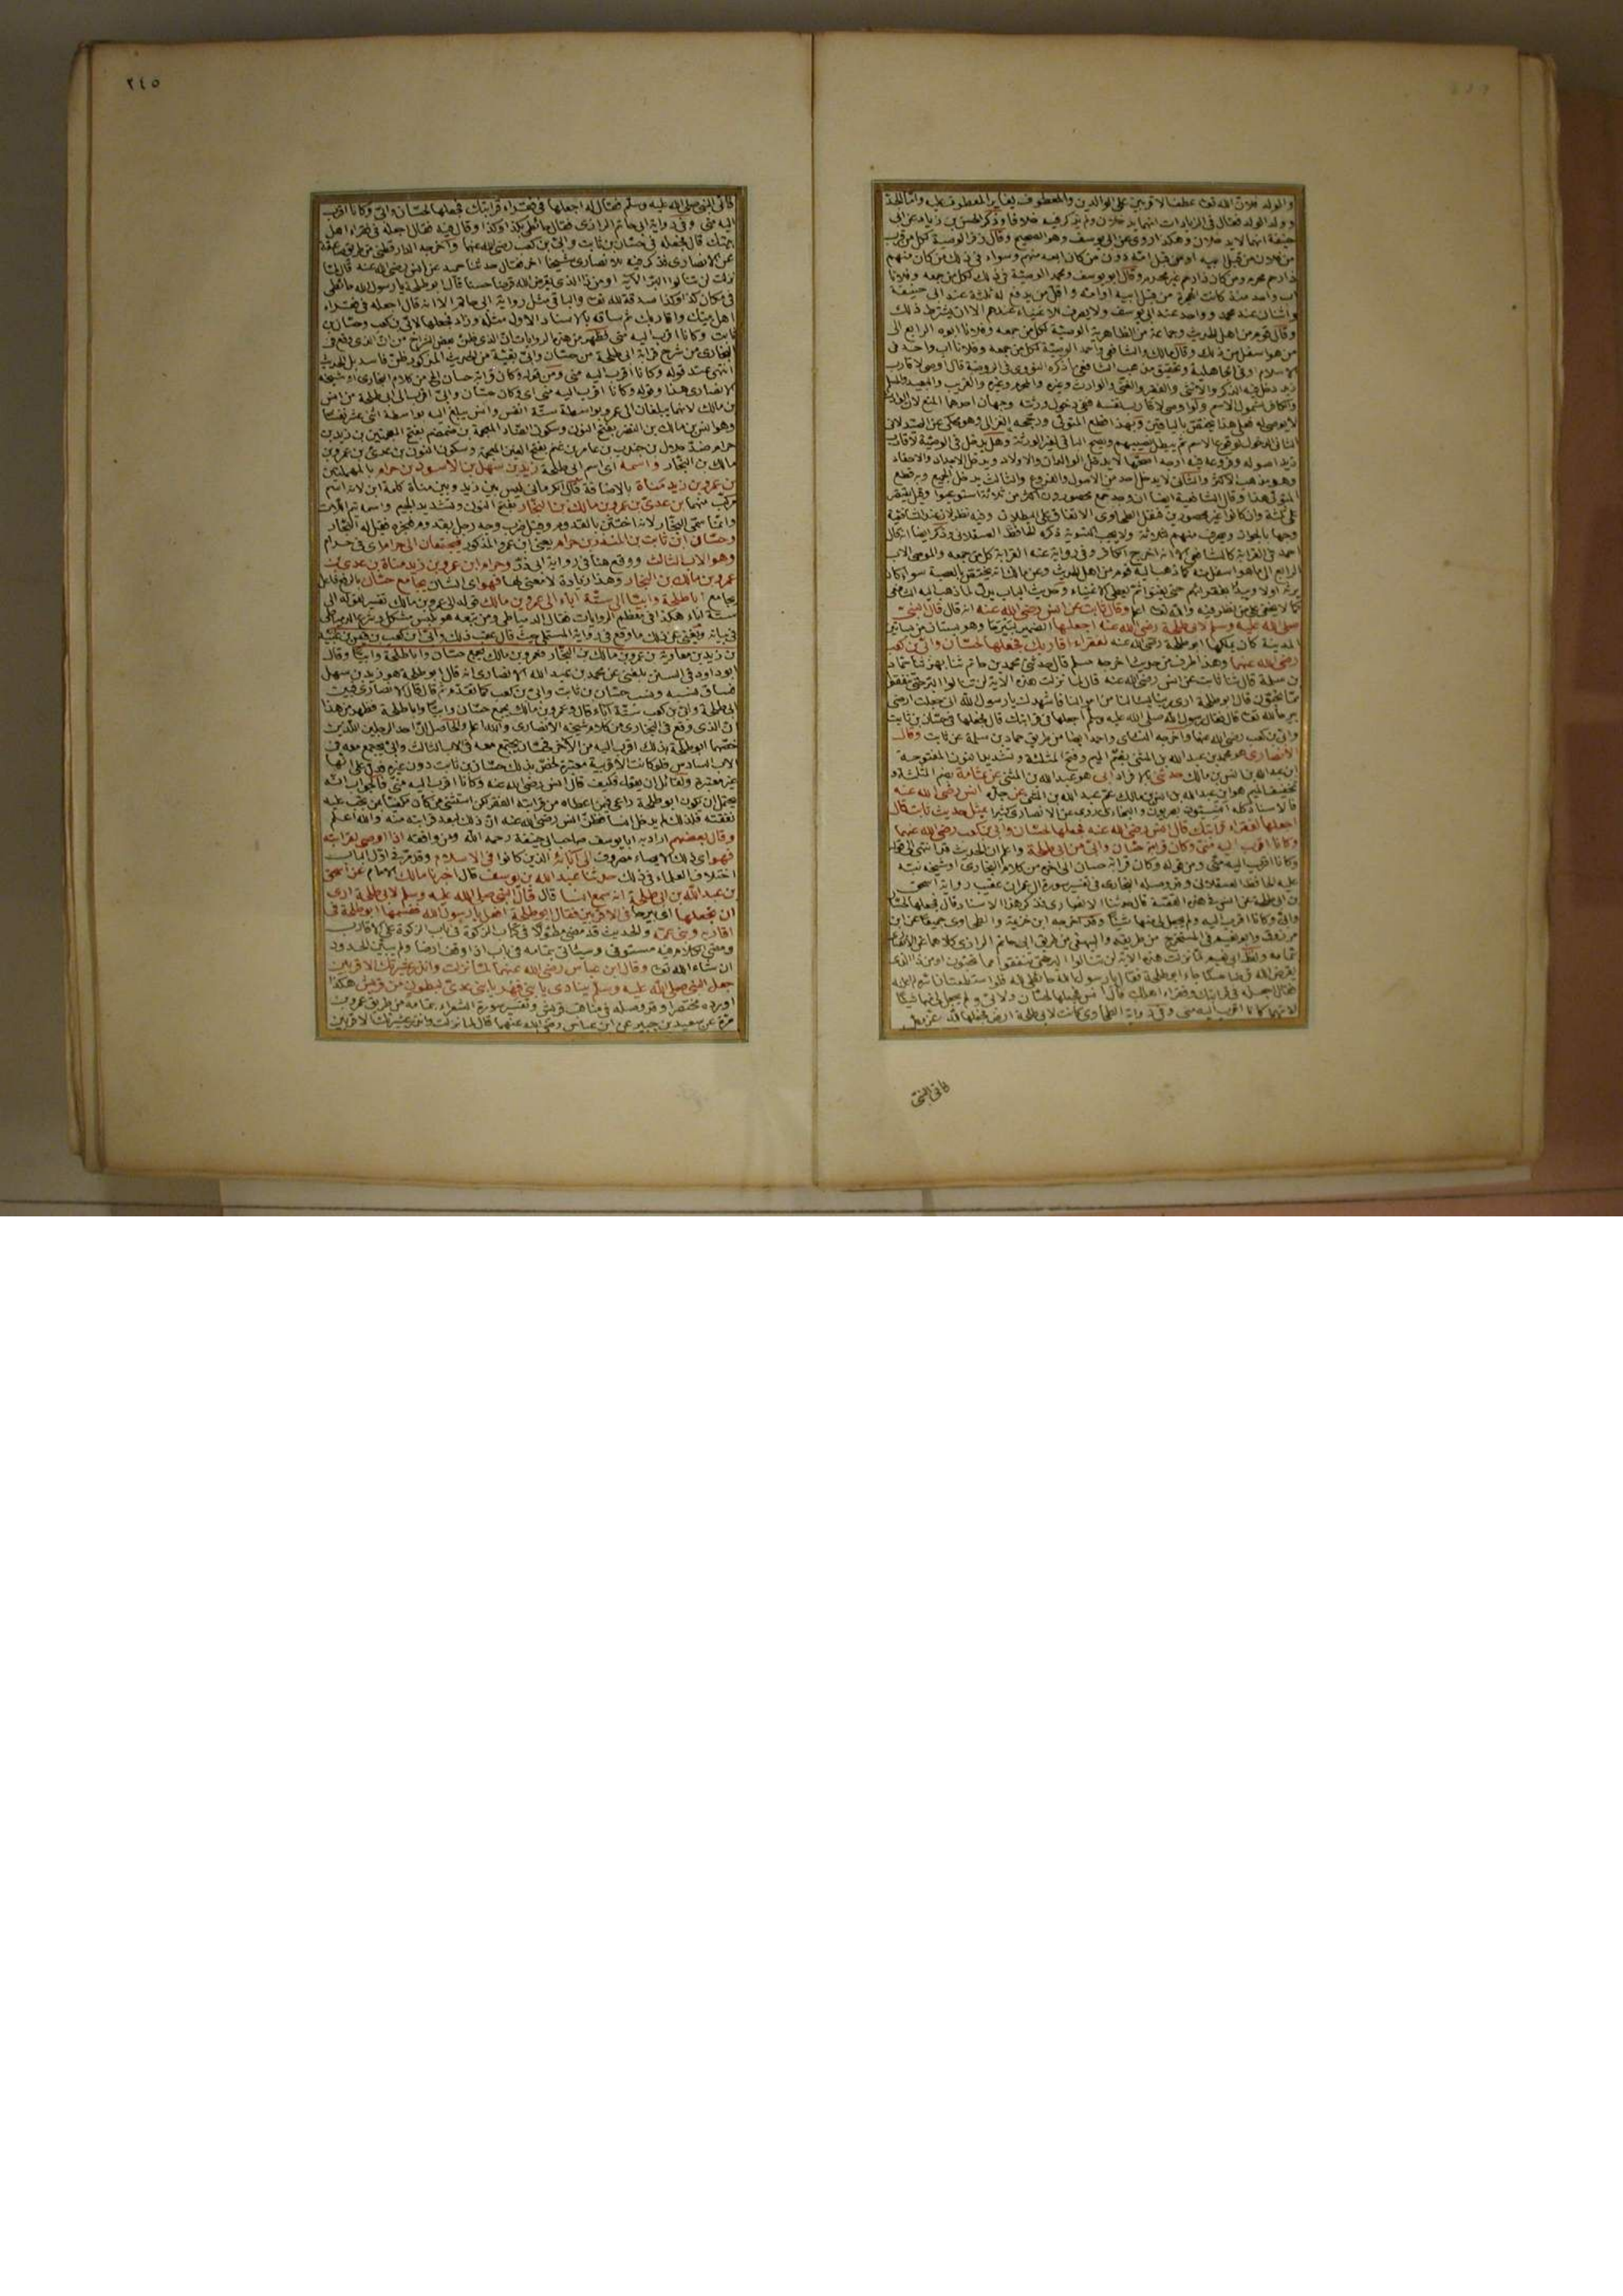 والولد فلان الله تعالى عطف الاقربين على الوالدين والمعطوف يغاير المعطوف عليه واما
وولد الولد فقال في الزيادات انهما يدخلان ولم يذكر فيه خلافا وذكر الحسن بن زياد عن ابي
حنيفة انهما لا يدخلان وهكذا روى عن ابي يوسف وهو الصحيح وقال زفر الوصية لكل من قرب
من فلان من قبل ابيه او من قبل امه دون من كان ابعد منهم وسواء في ذلك من كان منهم
ذا رحم محرم ومن كان ذا رحم غير محرم وقال ابو يوسف ومحمد الوصية في ذلك لكل من جمعه وفلانا
اب واحد منذ كانت الهجرة من قبل ابيه او امه
واثنان عند محمد وواحد عند ابي يوسف ولا يصرف للاغنياء عندهم الا ان يشترط ذلك
وقال قوم من اهل الحديث وجماعة من الظاهرية الوصية لكل من جمعه وفلانا ابوه الرابع الى
من هو اسفل من ذلك وقال مالك والشافعي واحمد الوصية لكل من جمعه وفلانا اب واحد في
الاسلام او في الجاهلية وتحقيق مذهب الشافعي ما ذكره النووي في الروضة قال اوصى لاقارب
زيد دخل فيه الذكر والانثى والفقير والغني والوارث وغيره والمحرم وغيره والقريب والبعيد والمسلم
والكافر لشمول الاسم ولو اوصى لاقارب نفسه ففي دخول ورثته وجهان احدهما المنع لان الوارث
لا يوصى له فعلى هذا يختص بالباقين وبهذا قطع المتولي ورجحه الغزالي وهو محكي عن الصيدلاني
الثاني الدخول لوقوع الاسم ثم يبطل نصيبهم ويصح الباقي لغير الورثة وهل يدخل في الوصية لاقارب
زيد اصوله وفروعه فيه اوجه اصحها لا يدخل الوالدان والاولاد ويدخل الاجداد والاحفاد
والثاني لا يدخل احد من الاصول والفروع والثالث يدخل الجميع وبه قطع
المتولي هذا وقال الشافعية ايضا ان وجد جمع محصورون اكثر من ثلاثة استوعبوا وقيل يقتصر
على ثلثة وان كانوا غير محصورين فنقل الطحاوي الاتفاق على البطلان وفيه نظر لان عند الشافعية
وجها بالجواز ويصرف منهم لثلاثة ولا يجب التسوية ذكره الحافظ العسقلاني وذكر ايضا
احمد في القرابة كالشافعي الا انه اخرج الكافر وفي رواية عنه القرابة كل من جمعه والموصي الاب
الرابع الى ما هو اسفل منه كما ذهب اليه قوم من اهل الحديث وعن مالك انه يختص بالعصبة سواء كان
يرثه او لا ويبدا بفقرائهم حتى يغنوا ثم يعطى الاغنياء وحديث الباب يدل لما ذهب اليه
كما لا يخفى والله تعالى اعلم وقال ثابت عن انس رضي الله عنه انه قال قال النبي
صلى الله عليه وسلم لابي طلحة رضي الله عنه اجعلها الضمير لبيرحا وهو بستان من بساتين
المدينة كان يملكها ابو طلحة رضي الله عنه لفقراء اقاربك فجعلها لحسان وابي بن كعب
رضي الله عنهما وهذا طرف من حديث اخرجه مسلم قال حدثني محمد بن حاتم ثنا بهز ثنا حماد
بن سلمة قال ثنا ثابت عن انس رضي الله عنه قال لما نزلت هذه الآية لن تنالوا البر حتى تنفقوا
مما تحبون قال ابو طلحة ارى ربنا يسالنا من اموالنا فاشهدك يا رسول الله اني جعلت ارضي
بيرحا لله تعالى قال فقال رسول الله صلى الله عليه وسلم اجعلها في قرابتك قال فجعلها في حسان بن ثابت
وابي بن كعب رضي الله عنهما واخرجه النسائي واحمد ايضا من طريق حماد بن سلمة عن ثابت وقال
الانصاري هو محمد بن عبد الله بن المثنى بضم الميم وفتح المثلثة وتشديد النون المفتوحة
ابن عبد الله بن انس بن مالك حدثني بالافراد ابي هو عبد الله بن المثنى عن ثمامة بضم المثلثة و
تخفيف الميم هو ابن عبد الله بن انس بن مالك عم عبد الله بن المثنى عن جده انس رضي الله عنه
بمثل حديث ثابت قال
اجعلها لفقراء قرابتك قال انس رضي الله عنه فجعلها لحسان وابي بن كعب رضي الله عنهما
وكانا اقرب اليه مني وكان قرابة حسان وابي من ابي طلحة واعلم ان الحديث قد انتهى الى قوله
وكانا اقرب اليه مني ومن قوله وكان قرابة حسان الى اخره من كلام البخاري او شيخه نبه
عليه الحافظ العسقلاني وقد وصله البخاري في تفسير سورة آل عمران عقيب رواية اسحق
بن ابي طلحة عن انس في هذه القصة قال حدثنا الانصاري فذكر هذا الاسناد قال فجعلها لحسان
وابي وكانا اقرب اليه ولم يجعل لي منها شيئا وقد اخرجه ابن خزيمة والطحاوي جميعا عن ابن
مرزوق وابو نعيم في المستخرج من طريقه والبيهقي من طريق ابي حاتم الرازي كلاهما عن الانصاري
لما نزلت هذه الآية لن تنالوا البر حتى تنفقوا مما تحبون او من ذا الذي
يقرض الله قرضا حسنا جاء ابو طلحة فقال يا رسول الله حائطي لله فلو استطعت ان اسره لم اعلنه
فقال اجعله في قرابتك وفقراء اهلك قال انس فجعلها لحسان ولابي ولم يجعل لي منها شيئا
لانهما كانا اقرب اليه مني وفي رواية الطحاوي كانت لابي طلحة ارض فجعلها لله عز وجل
فاتى النبي
٢٤٥
فاتى النبي صلى الله عليه وسلم فقال له اجعلها في فقراء قرابتك فجعلها لحسان وابي وكانا اقرب
اليه مني وفي رواية ابي حاتم الرازي فقال حائطي بكذا وكذا وقال فيه فقال اجعله في فقراء اهل
بيتك قال فجعله في حسان بن ثابت وابي بن كعب رضي الله عنهما واخرجه الدارقطني من طريق صاعقة
عن الانصاري فذكر فيه للانصاري شيخا اخر فقال حدثنا حميد عن انس رضي الله عنه قال لما
نزلت لن تنالوا البر الآية او من ذا الذي يقرض الله قرضا حسنا قال ابو طلحة يا رسول الله حائطي
في مكان كذا وكذا صدقة لله تعالى والباقي مثل رواية ابي حاتم الا انه قال اجعله في فقراء
اهل بيتك واقاربك ثم ساقه بالاسناد الاول مثله وزاد فجعلها لابي بن كعب وحسان بن
ثابت وكانا اقرب اليه مني فظهر من هذه الروايات ان الذي ظن بعض الشراح من ان الذي وقع في
البخاري من شرح قرابة ابي طلحة من حسان وابي بقية من الحديث المذكور ظن فاسد بل الحديث
انتهى عند قوله وكانا اقرب اليه مني ومن قوله وكان قرابة حسان الخ من كلام البخاري او شيخه
الانصاري هذا وقوله وكانا اقرب اليه مني اي وكان حسان وابي اقرب الى ابي طلحة من انس
بن مالك لانهما يبلغان الى عمرو بواسطة ستة انفس وانس يبلغ اليه بواسطة اثنى عشر نفسا
وهو انس بن مالك بن النضر بفتح النون وسكون الضاد المعجمة بن ضمضم بفتح المعجمتين بن زيد بن
حرام ضد حلال بن جندب بن عامر بن غنم بفتح الغين المعجمة وسكون النون بن عدي بن عمرو بن
مالك بن النجار واسمه اي اسم ابي طلحة زيد بن سهل بن الاسود بن حرام بالمهملتين
بن عمرو بن زيد مناة بالاضافة قال الكرماني ليس بين زيد وبين مناة كلمة ابن لانه اسم
مركب منهما بن عدي بن عمرو بن مالك بن النجار بفتح النون وتشديد الجيم واسمه تيم اللات
وانما سمي النجار لانه اختتن بالقدوم وقيل ضرب وجه رجل بقدوم فنجره فقيل له النجار
وحسان ابن ثابت بن المنذر بن حرام يعني ابن عمرو المذكور فيجتمعان الى حرام اي في حرام
وهو الاب الثالث ووقع هنا في رواية ابي ذر وحرام ابن عمرو بن زيد مناة بن عدي بن
عمرو بن مالك بن النجار وهذا زيادة لا معنى لها فهو اي الشان يجامع حسان بالرفع فاعل
يجامع ابا طلحة وابيا الى ستة آباء الى عمرو بن مالك قوله الى عمرو بن مالك تفسير لقوله الى
ستة آباء هكذا في معظم الروايات فقال الدمياطي ومن تبعه هو ملبس مشكل وشرع الدمياطي
في بيانه ويغني عن ذلك ما وقع في رواية المستملي حيث قال عقب ذلك وابي ابن كعب بن قيس بن عبيد
بن زيد بن معاوية بن عمرو بن مالك بن النجار فعمرو بن مالك يجمع حسان وابا طلحة وابيا وقال
ابو داود في السنن بلغني عن محمد بن عبد الله الانصاري انه قال ابو طلحة هو زيد بن سهل
فساق نسبه ونسب حسان بن ثابت وابي بن كعب كما تقدم ثم قال قال الانصاري فبين
ابي طلحة وابي بن كعب ستة آباء قال وعمرو بن مالك يجمع حسان وابيا وابا طلحة فظهر من هذا
ان الذي وقع في البخاري من كلام شيخه الانصاري والله اعلم والحاصل ان احد الرجلين اللذين
خصهما ابو طلحة بذلك اقرب اليه من الآخر فحسان يجتمع معه في الاب الثالث وابي يجتمع معه في
الاب السادس فلو كانت الاقربية معتبرة لخص بذلك حسان بن ثابت دون غيره فدل على انها
غير معتبرة ولقائل ان يقول فكيف قال انس رضي الله عنه وكانا اقرب اليه مني فالجواب انه
يحتمل ان يكون ابو طلحة راعى فيمن اعطاه من قرابته الفقر لكن استثنى من كان مكفيا ممن تجب عليه
نفقته فلذلك لم يدخل انسا فظن انس رضي الله عنه ان ذلك لبعد قرابته منه والله اعلم
وقال بعضهم اراد به ابا يوسف صاحب ابي حنيفة رحمه الله ومن وافقه اذا اوصى لقرابته
فهو اي ذلك الايصاء مصروف الى آبائه الذين كانوا في الاسلام وقد مر في اول الباب
اختلاف العلماء في ذلك حدثنا عبد الله بن يوسف قال اخبرنا مالك الامام عن اسحق
بن عبد الله بن ابي طلحة انه سمع انسا قال قال النبي صلى الله عليه وسلم لابي طلحة ارى
ان تجعلها اي بيرحا في الاقربين فقال ابو طلحة افعل يا رسول الله فقسمها ابو طلحة في
اقاربه وبني عمه والحديث قد مضى مطولا في كتاب الزكوة في باب الزكوة على الاقارب
ومضى الكلام فيه مستوفى وسيأتي بتمامه في باب اذا وقف ارضا ولم يبين الحدود
ان شاء الله تعالى وقال ابن عباس رضي الله عنهما لما نزلت وانذر عشيرتك الاقربين
جعل النبي صلى الله عليه وسلم ينادي يا بني فهر يا بني عدي لبطون من قريش هكذا
اورده مختصرا وقد وصله في مناقب قريش وتفسير سورة الشعراء بتمامه من طريق عمرو بن
مرة عن سعيد بن جبير عن ابن عباس رضي الله عنهما قال لما نزلت وانذر عشيرتك الاقربين